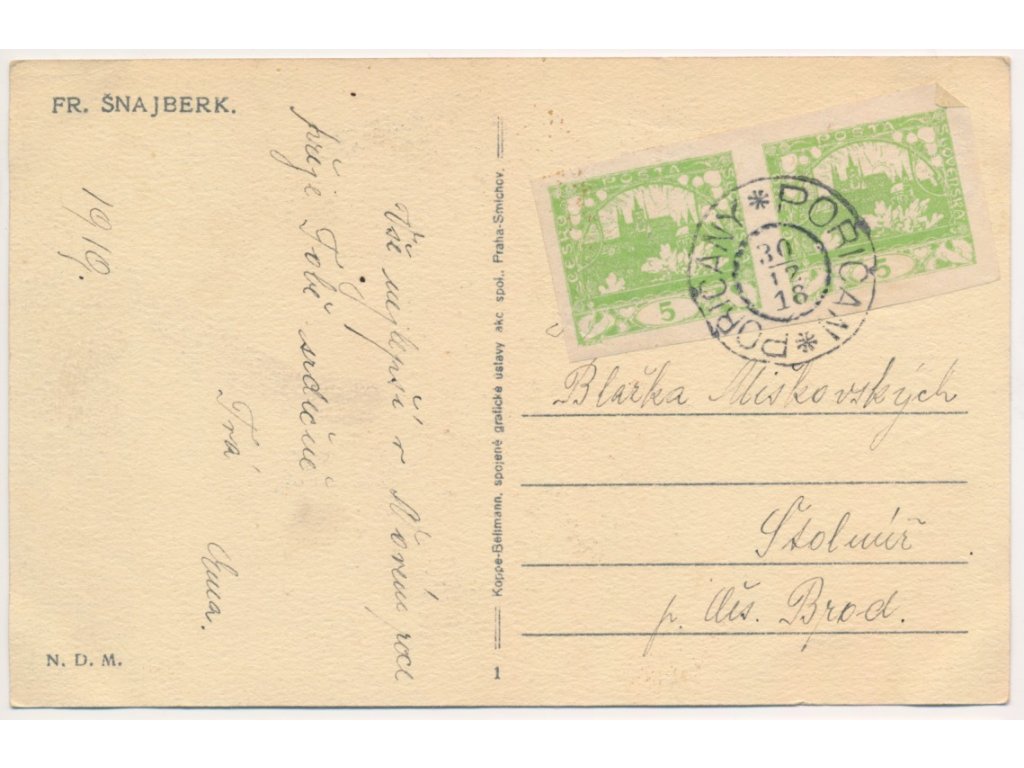 FR. ŠNAJBERK.
Vše nejlepší v Novém roce
přeje Tobě srdečně
Tvá
Ema.
1919.
N. D. M.
Koppe-Bellmann, spojené grafické ústavy akc. spol., Praha-Smíchov.
1
POŠTA
ČESKO
SLOVENSKÁ
5
POŠTA
5
POŘÍČANY * POŘÍČAN *
30
12
18
Blažka Miškovských
Štolmíř
p. Čes. Brod.